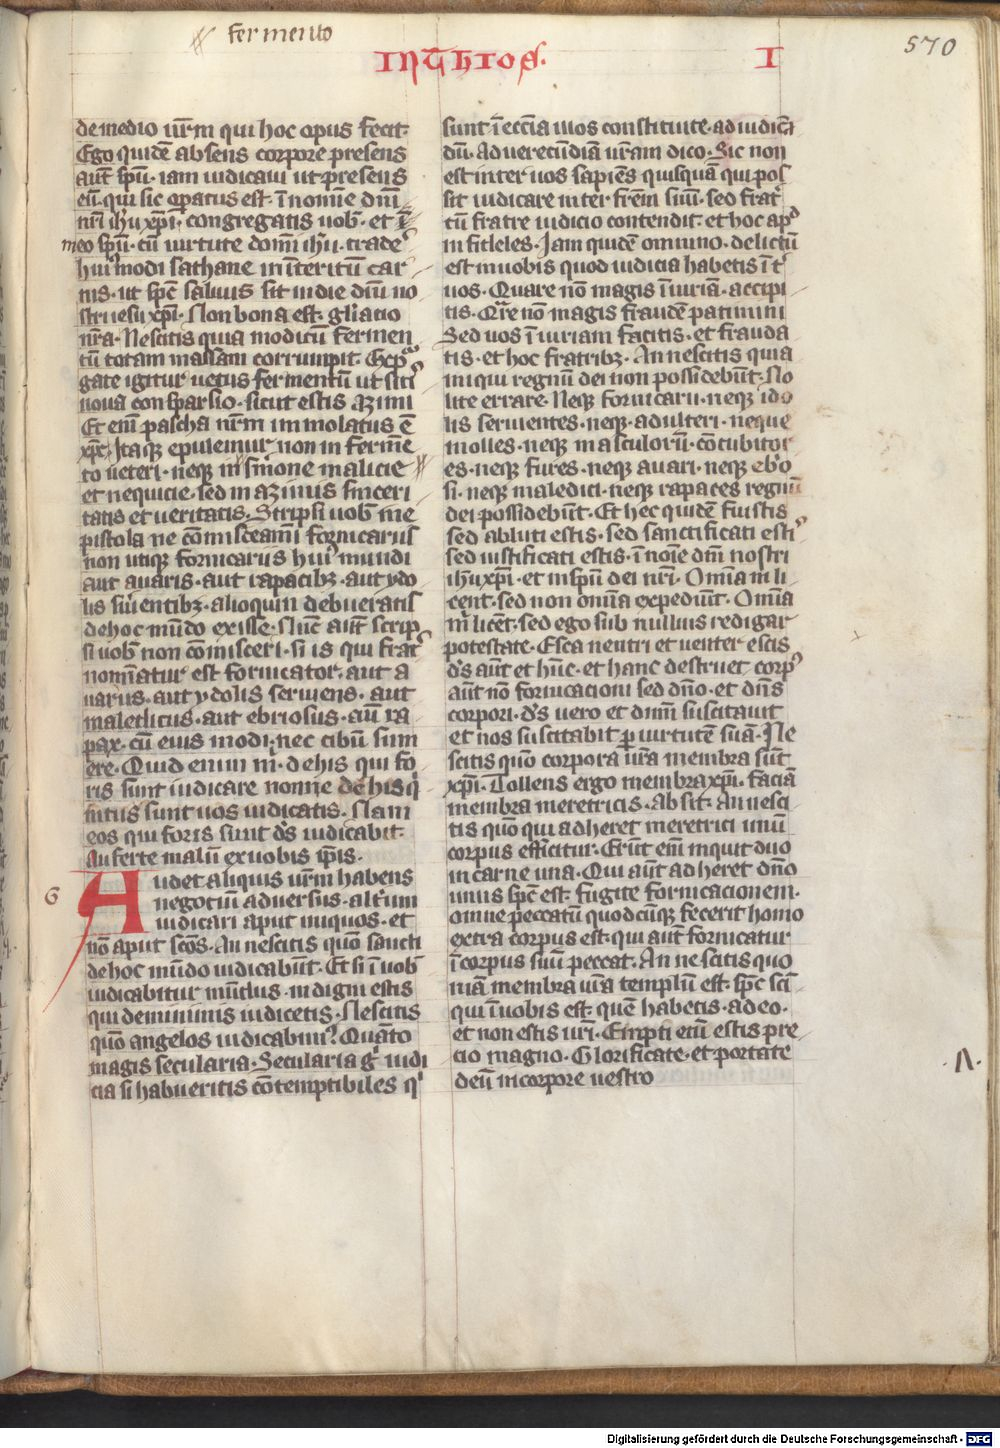 fermento
INTHIOS.
I
570
de medio ur̄m qui hoc opus fecit·
Ego quidē absens corpore presens
aūt sp̄u· iam iudicaui ut presens
eū· qui sic op̄atus est· ī nomīe dn̄i
nr̄i ih̄u xp̄i· congregatis uob̄· et ī
meo sp̄u· cū uirtute domī ih̄u· trade
hui᷒modi sathane in īteritū car
nis· ut sp̄c saluus sit in die dn̄i no
stri iesu xp̄i· Non bona est· gl̄iacio
nr̄a· Nescitis quia modicū fermen
tū totam massam corrumpit· Expr
gate igitur uetus fermentū ut siti᷒
noua consparsio· sicut estis azimi
Et enī pascha nr̄m immolatus ē
xp̄c· Itaq̄ epulemur non in fermē
to ueteri· neq̄ in fmone malicie
et nequicie· sed in azimis sinceri
tatis et ueritatis· Scripsi uob̄ in e
pistola ne cōmisceamī fornicariis
non utiq̄ fornicariis hui᷒ mundi
aut auaris· aut rapacibȝ· aut ydo
lis s̄uientibȝ· alioquin debueratis
de hoc mūdo exisse· Nūc aūt scrip
si uob̄ non cōmisceri· si is qui frat̄
nomīatur est fornicator· aut a
uarus· aut ydolis seruiens· aut
maledicus· aut ebriosus· aut ra
pax· cū eius modi· nec cibū sum
ere· Quid enim m̄· de his qui fo
ris sunt iudicare nonne de his q̄
intus sunt uos iudicatis· Nam
eos qui foris sunt ds̄ iudicabit·
Auferte malū ex uobis ip̄is·
6
Audet aliquis ur̄m habens
negotiū aduersus· alt̄um
iudicari aput iniquos· et
nō aput scōs· An nescitis quō sancti
de hoc mūdo iudicabūt· Et si ī uob̄
iudicabitur mūdus· indigni estis
qui de minimis iudicetis· Nescitis
quō angelos iudicabim᷒? Quāto
magis secularia· Secularia gͥ iudi
cia si habueritis cōtemptibiles qͥ
sunt ī ecc̄ia illos constituite· ad iudicā
dū· Ad uerecūdiā ur̄am dico· Sic non
est inter uos sapiēs quisquā qui pos
sit iudicare inter frēm suū· sed frat̄
tū fratre iudicio contendit· et hoc ap᷒
infideles· Iam quidē omnino· delictū
est in uobis quod iudicia habetis īt̄
uos· Quare nō magis īiuriā· accipi
tis· Qr̄e nō magis fraudē patimini
Sed uos īiuriam facitis· et frauda
tis· et hoc fratribȝ· An nescitis quia
iniqui regnū dei non possidebūt· No
lite errare· Neq̄ fornicarii· neq̄ ido
lis seruientes· neq̄· adulteri· neque
molles· neq̄ masculorū· cōcubitor
es· neq̄ fures· neq̄ auari· neq̄ eb̄o
si· neq̄ maledici· neq̄ rapaces regnū
dei possidebūt· Et hec quidē fuistis
sed abluti estis· sed sanctificati esti᷒
sed iustificati estis· ī noīe dn̄i nostri
ih̄u xp̄i· et in sp̄u dei nr̄i· Omīa m̄ li
cent· sed non omīa expediūt· Omīa
m̄ licēt· sed ego sub nullius redigar
potestate· Esca uentri et uenter escis
ds̄ aūt et hūc· et hanc destruet· corp᷒
aūt nō fornicacioni sed dn̄o· et dn̄s
corpori· ds̄ uero et dn̄m suscitauit
et nos suscitabit p̄ uirtutē suā· Ne
scitis quō corpora ur̄a membra sūt
xp̄i· Tollens ergo membra xp̄i· faciā
membra meretricis· Absit· An nesci
tis quō qui adheret meretrici unū
corpus efficitur· Erūt enī inquit duo
in carne una· Qui aūt adheret dn̄o
unus sp̄c est· fugite fornicacionem·
omne peccatū quodcūq̄ fecerit homo
extra corpus est· qui aūt fornicatur
ī corpus suū peccat· An nescitis quo
niā membra ur̄a templū est· sp̄c sc̄i
qui ī uobis est· quē habetis· a deo·
et non estis ur̄i· Empti enī estis pre
cio magno· Glorificate· et portate
deū in corpore uestro
Digitalisierung gefördert durch die Deutsche Forschungsgemeinschaft - DFG